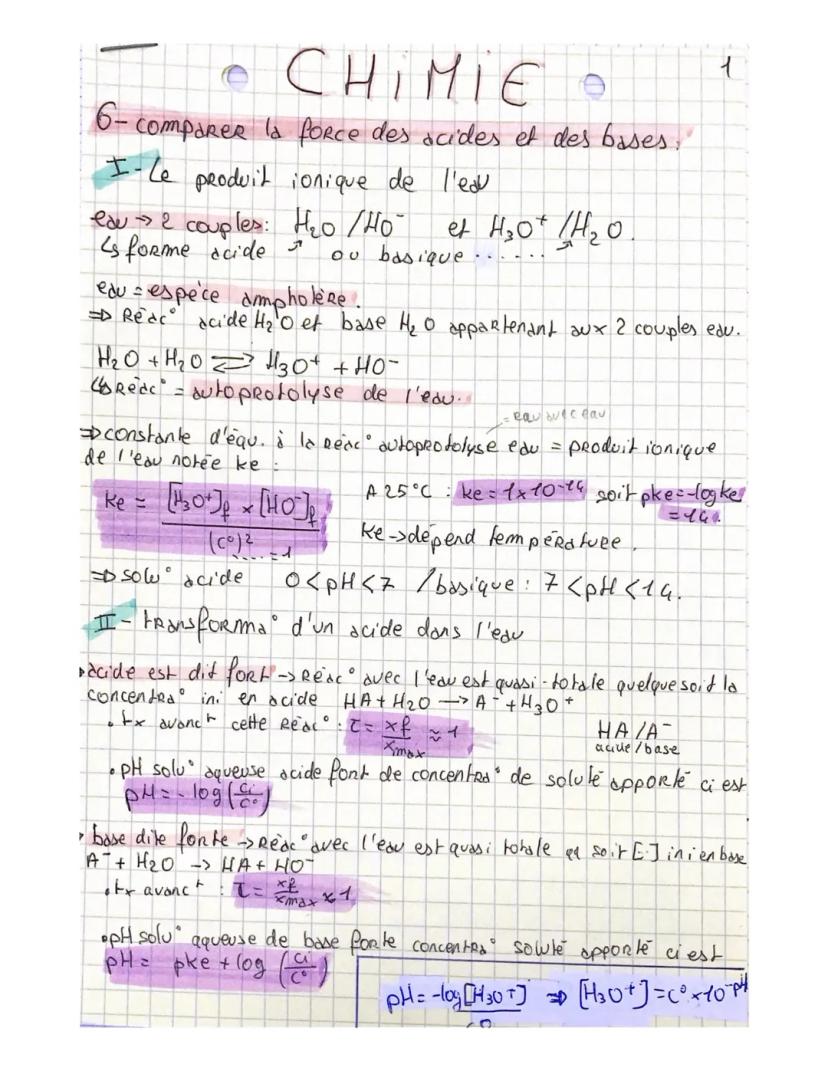 1
CHIMIE
6- comparer la force des acides et des bases.
I- Le produit ionique de l'eau
eau → 2 couples: H₂O / HO⁻ et H₃O⁺ / H₂O.
↳ forme acide ↗ ou basique ...... ↗
eau = espèce ampholère.
⇒ Réac° acide H₂O et base H₂O appartenant aux 2 couples eau.
H₂O + H₂O ⇌ H₃O⁺ + HO⁻
↳ Réac° = autoprotolyse de l'eau.
= eau avec eau
⇒ constante d'équ. à la Réac° autoprotolyse eau = produit ionique
de l'eau notée ke :
ke = [H₃O⁺]f × [HO⁻]f / (C°)² = 1
A 25°C : ke = 1×10⁻¹⁴ soit pke = -log ke
= 14.
Ke → dépend température.
⇒ solu° acide 0 < pH < 7 / basique : 7 < pH < 14.
II- transforma° d'un acide dans l'eau
• acide est dit fort → Réac° avec l'eau est quasi-totale quelque soit la
concentra° ini en acide HA + H₂O → A⁻ + H₃O⁺
. tx avancᵗ cette Réac° : τ = xf / xmax ≈ 1 HA / A⁻
acide / base
• pH solu° aqueuse acide font de concentra° de soluté apporté ci est
pH = - log (ci / C°)
• base dite forte → Réac° avec l'eau est quasi totale qq soit [.] ini en base
A⁻ + H₂O → HA + HO⁻
. tx avancᵗ : τ = xf / xmax ≈ 1
• pH solu° aqueuse de base forte concentra° soluté apporté ci est
pH = pke + log (ci / C°)
pH = -log [H₃O⁺] / C° ⇒ [H₃O⁺] = C° × 10⁻ᵖᴴ